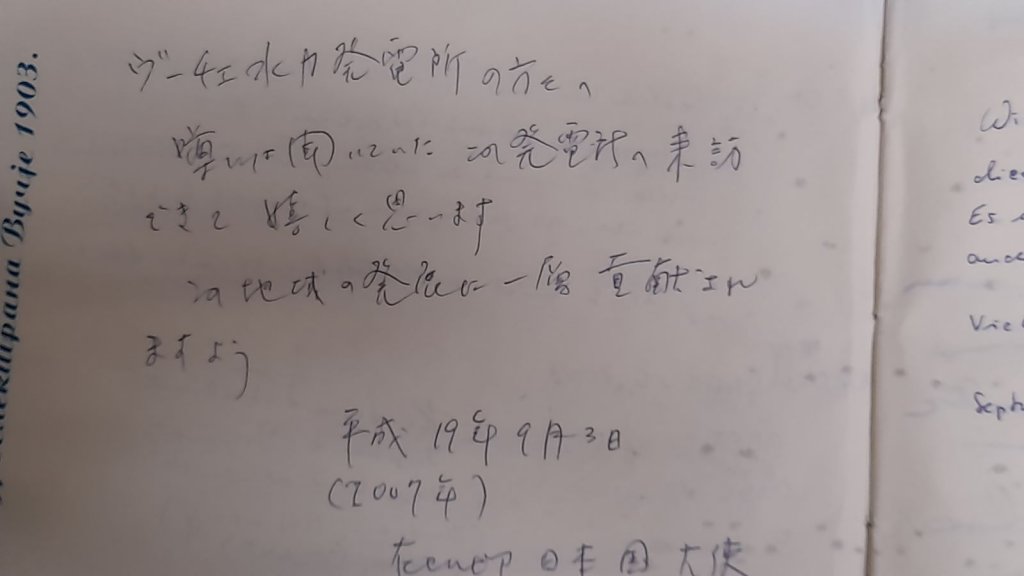 ヴーチェ水力発電所の方々へ
噂には聞いていたこの発電所へ来訪
できて嬉しく思います
この地域の発展に一層貢献され
ますよう
平成19年9月3日
(2007年)
日本国大使
Byuje 1903.
Wi
die
Es
and
Vie
Sept